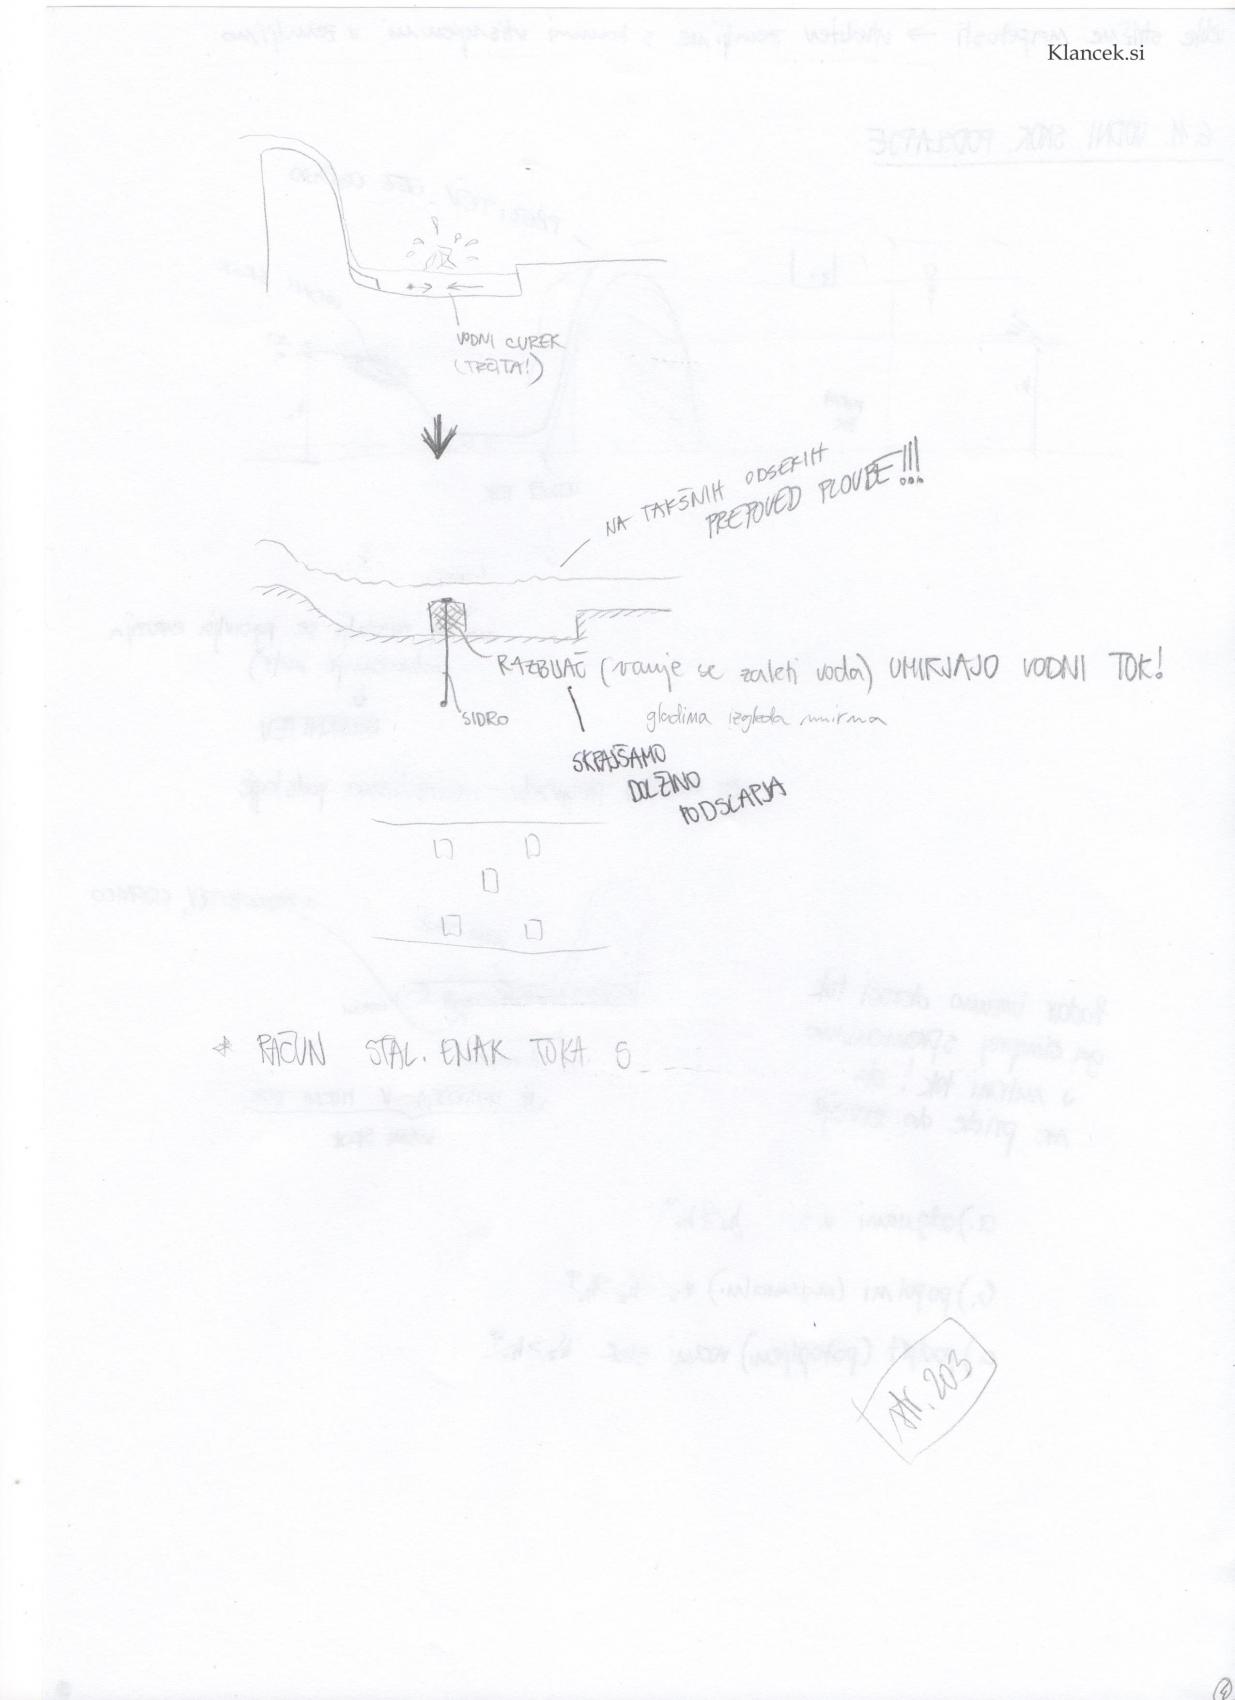 Klancek.si
VODNI CUREK
(TRČITA!)
NA TAKŠNIH ODSEKIH
PREPOVED PLOVBE!!!
RAZBIJAČ (vanje se zaleti voda) UMIRJAJO VODNI TOK!
SIDRO
gladina izgleda mirna
SKRAJŠAMO
DOLŽINO
PODSLAPJA
* RAČUN STAL. ENAK TOKA S
str. 203